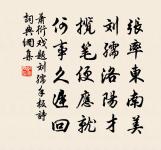 張率東南美
劉孺洛陽才
攬筆便應就
何事久遲回
蕭衍戲題劉孺手板詩
詞典網集